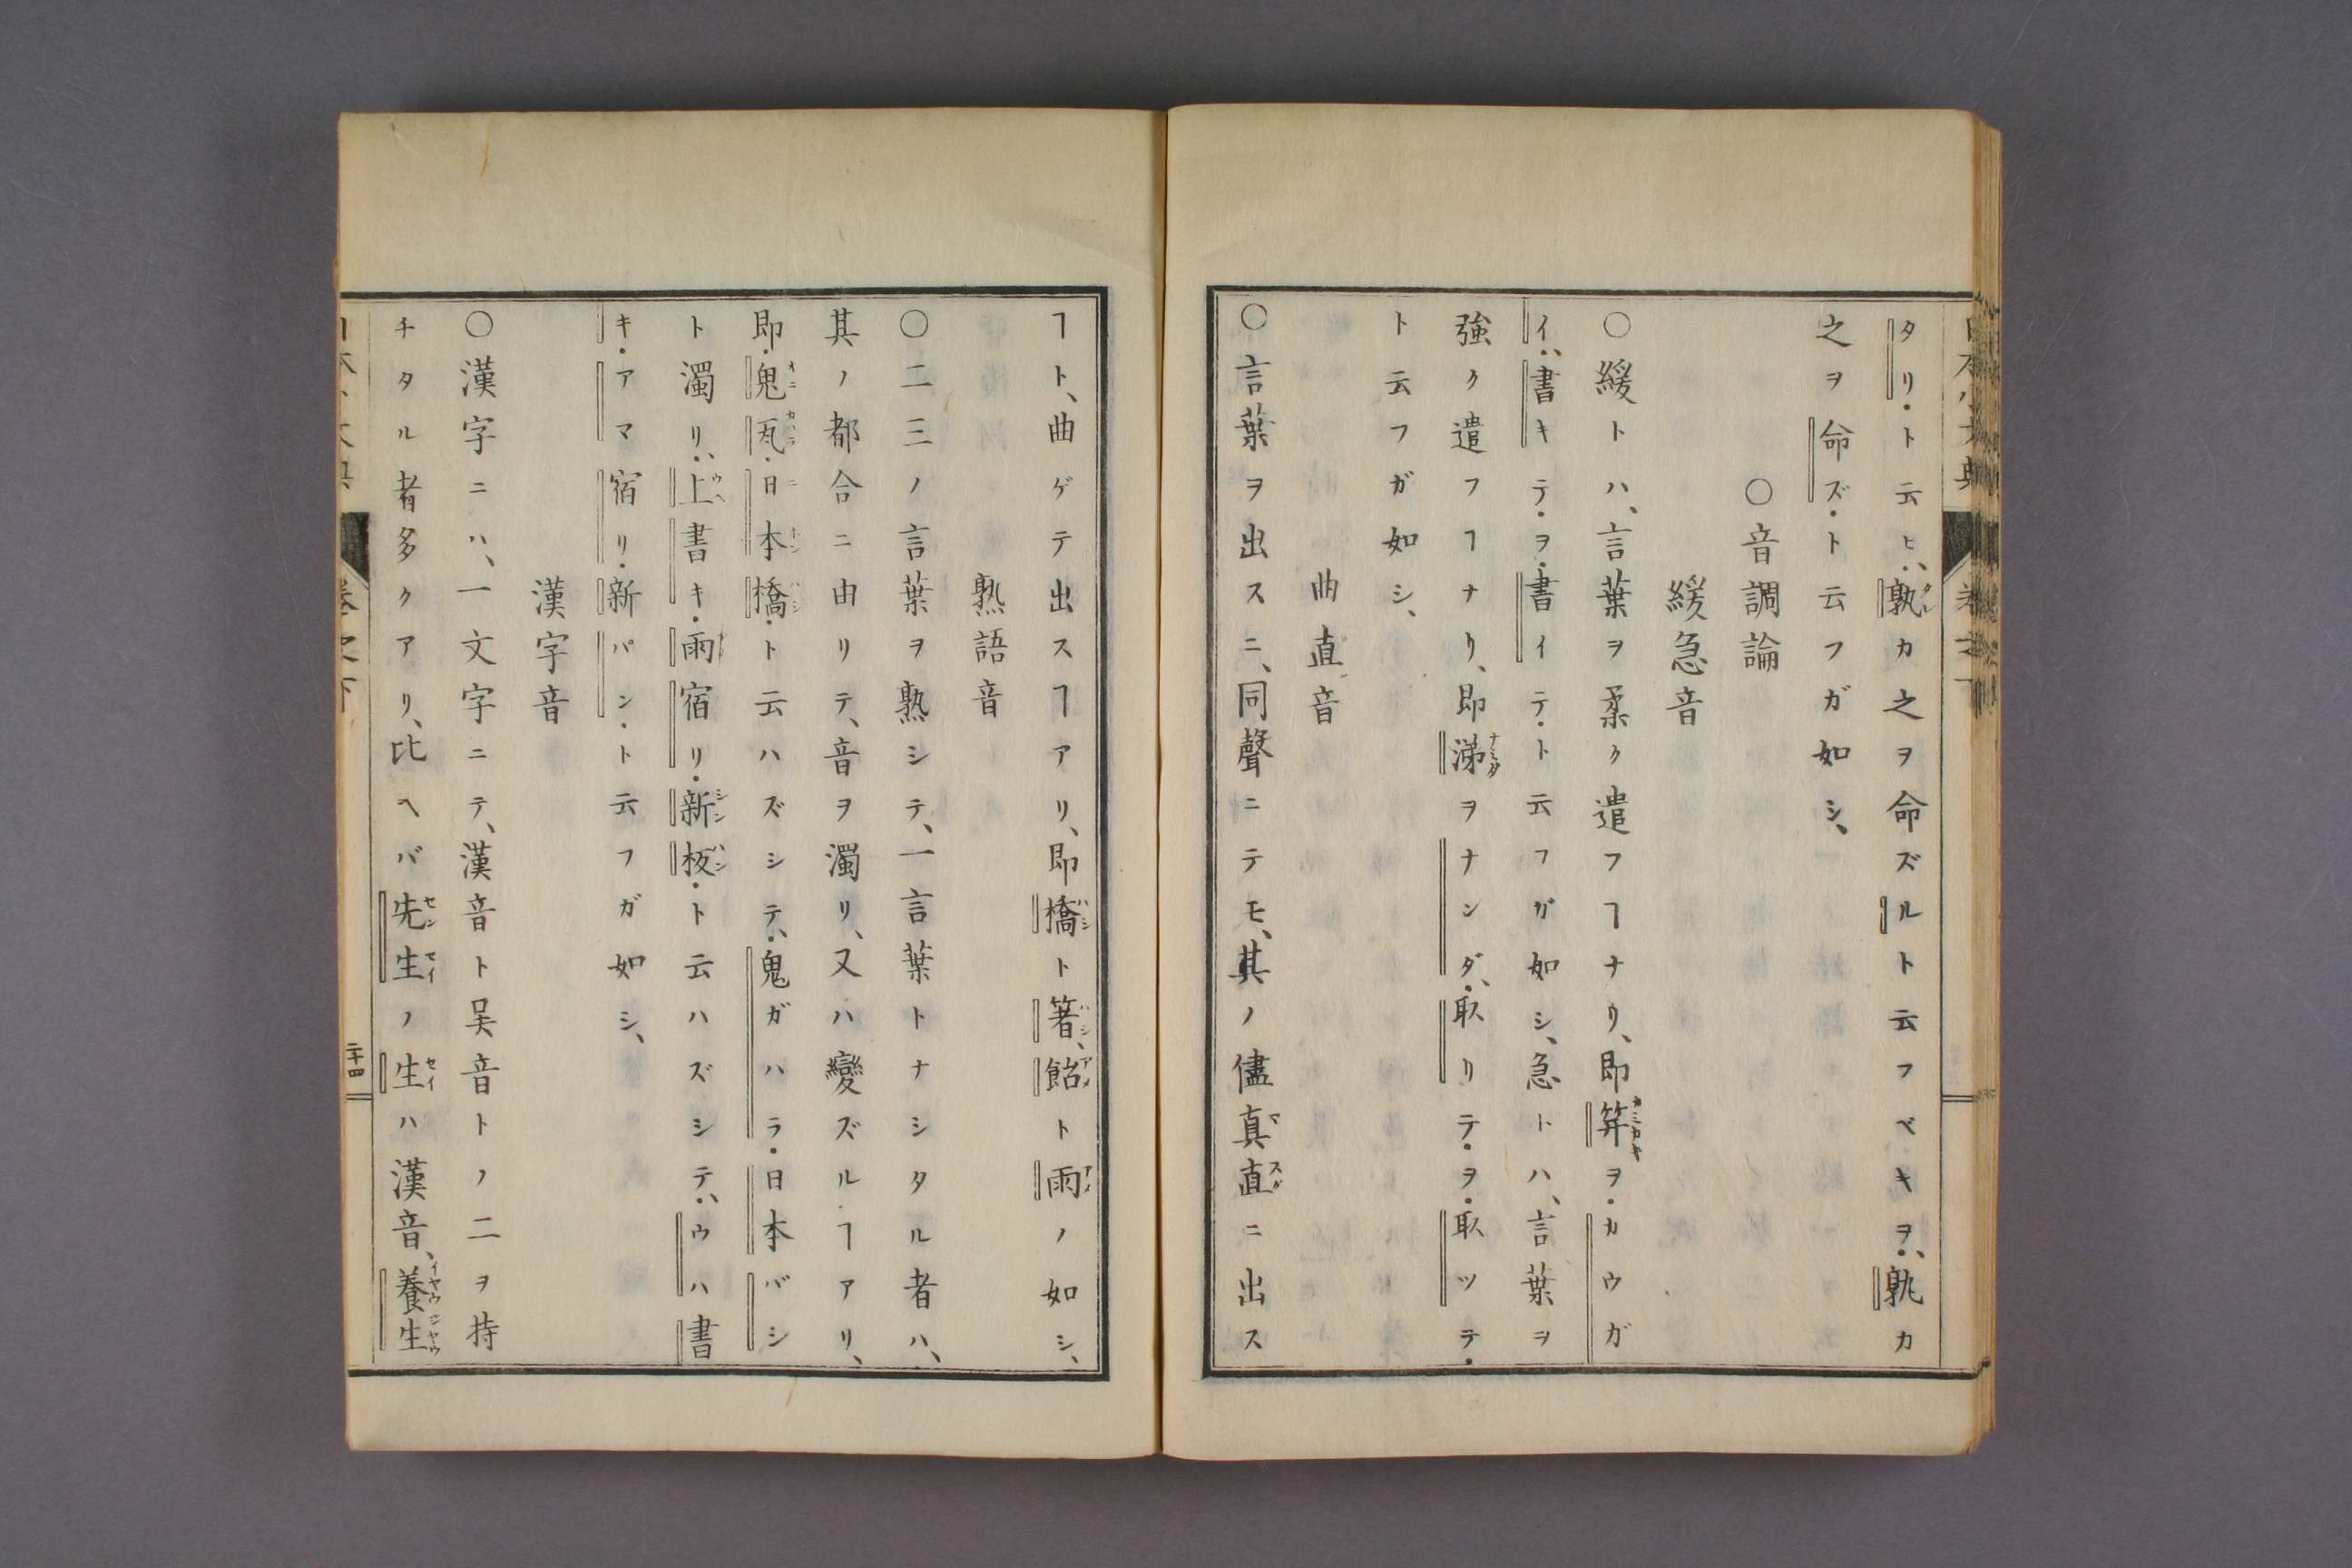 タリ・ト云ヒ、・孰カ之ヲ命ズルト云フベキヲ、・孰カ
之ヲ命ズ・ト云フガ如シ、
〇音調論
緩急音
〇緩トハ、言葉ヲ柔ク遣フヿナリ、即笄ヲ・カウガ
イ、・書キテ・ヲ・書イテ・ト云フガ如シ、急トハ、言葉ヲ
強ク遣フヿナリ、即涕ヲナンダ、・取リテ・ヲ・取ツテ・
ト云フガ如シ、
曲直音
〇言葉ヲ出スニ、同聲ニテモ、其ノ儘真直ニ出ス
ヿト、曲ゲテ出スヿアリ、即橋ト箸、飴ト雨ノ如シ、
熟語音
〇二三ノ言葉ヲ熟シテ、一言葉トナシタル者ハ、
其ノ都合ニ由リテ、音ヲ濁リ、又ハ變ズルヿアリ、
即・鬼瓦・日本橋・ト云ハズシテ、・鬼ガハラ・日本バシ
ト濁リ、・上書キ・雨宿リ・新板・ト云ハズシテ、・ウハ書
キ・アマ宿リ・新パン・ト云フガ如シ、
漢字音
〇漢字ニハ、一文字ニテ、漢音ト呉音トノ二ヲ持
チタル者多クアリ、比ヘバ先生ノ生ハ漢音、養生
二十四